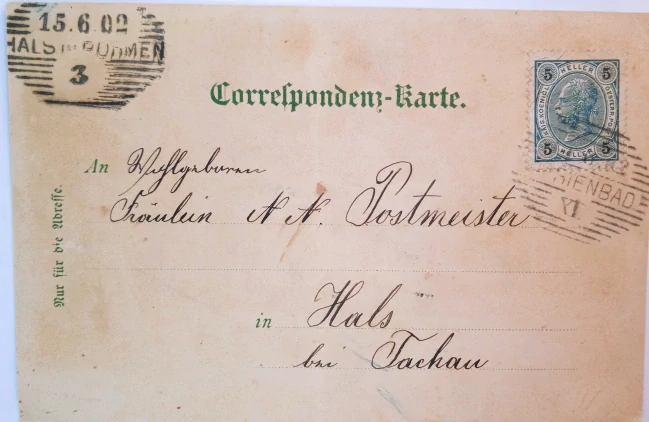 15.6.02
HALS in BÖHMEN
3
Correspondenz-Karte.
5 HELLER 5
KAIS. KOENIGL. OESTERR. POST
5 HELLER 5
An Wohlgeboren
Fräulein N. N. Postmeister
IENBAD
XI
Nur für die Adresse.
in Hals
bei Tachau